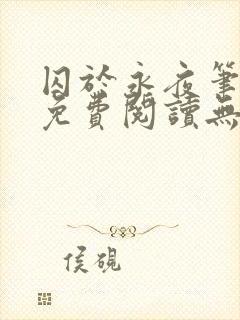 囚於永夜筆
免費閱讀無
侯硯